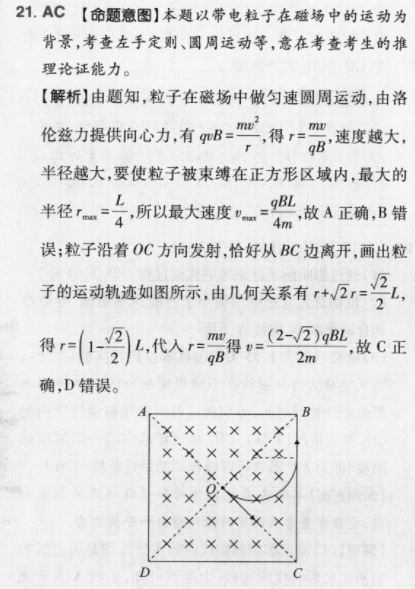 21. AC 【命题意图】本题以带电粒子在磁场中的运动为
背景,考查左手定则、圆周运动等,意在考查考生的推
理论证能力。
【解析】由题知,粒子在磁场中做匀速圆周运动,由洛
伦兹力提供向心力,有 qvB=\frac{mv^2}{r},得 r=\frac{mv}{qB},速度越大,
半径越大,要使粒子被束缚在正方形区域内,最大的
半径 r_{max}=\frac{L}{4},所以最大速度 v_{max}=\frac{qBL}{4m},故 A 正确,B 错
误;粒子沿着 OC 方向发射,恰好从 BC 边离开,画出粒
子的运动轨迹如图所示,由几何关系有 r+\sqrt{2}r=\frac{\sqrt{2}}{2}L,
得 r=\left(1-\frac{\sqrt{2}}{2}\right)L,代入 r=\frac{mv}{qB}得 v=\frac{(2-\sqrt{2})qBL}{2m},故 C 正
确,D 错误。
A B
O
D C